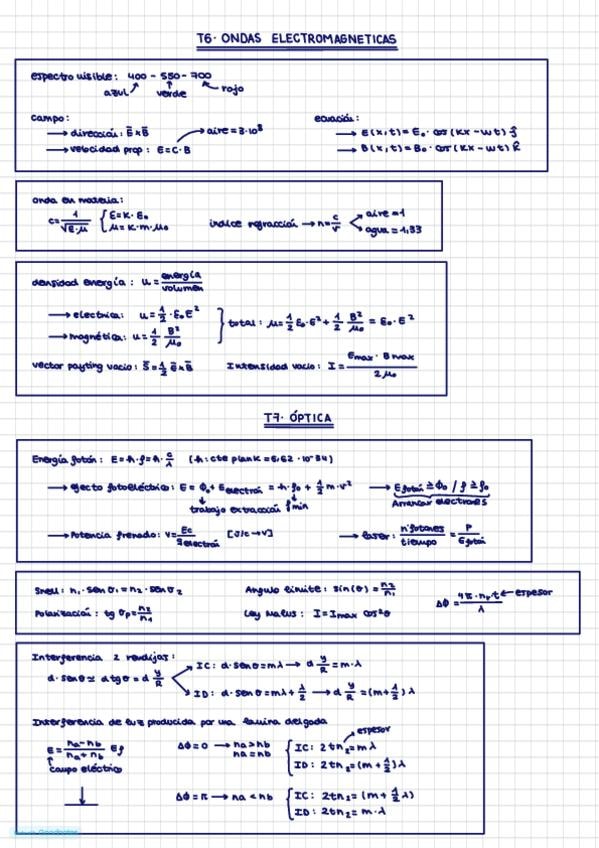 T6· ONDAS ELECTROMAGNETICAS
espectro visible: 400 - 550 - 700
azul verde rojo
campo: ecuación:
→ dirección: E̅ x B̅ → aire = 3·10⁸ → E(x,t) = E₀ · cos(Kx - wt) ĵ
→ velocidad prop: E = C · B → B(x,t) = B₀ · cos(Kx - wt) k̂
onda en materia:
c = 1/√(ε·μ) { ε = K · ε₀ índice refracción → n = c/v aire = 1
μ = K·m·μ₀ agua = 1,33
densidad energía: u = energía/volumen
→ electrica: u = 1/2 · ε₀ E² } total: μ = 1/2 ε₀·E² + 1/2 B²/μ₀ = ε₀·E²
→ magnética: u = 1/2 B²/μ₀
vector poyting vacio: S̅ = 1/2 E̅ x B̅ Intensidad vacio: I = Emax · Bmax / 2μ₀
T7· ÓPTICA
Energía fotón: E = h·f = h· c/λ (h: cte plank = 6,62 · 10^-34)
→ efecto fotoeléctrico: E = ϕ₀ + E electrón = h·f₀ + 1/2 m·v² → E fotón ≥ ϕ₀ / f ≥ f₀
trabajo extracción f min Arrancar electrones
→ Potencia frenado: V = Ec/q electrón [J/c → V] → laser: nºfotones/tiempo = P/E fotón
Snell: n₁ · sen σ₁ = n₂ · sen σ₂ Angulo limite: sin(θ) = n₂/n₁ Δϕ = 4π · nᵣ t/λ ← espesor
Polarización: tg σp = n₂/n₁ Ley Malus: I = Imax cos²θ
Interferencia 2 rendijas:
d · sen θ ≃ d tg θ = d y/R IC: d · sen θ = mλ → d y/R = m·λ
ID: d · sen θ = mλ + λ/2 → d y/R = (m + 1/2) λ
Interferencia de luz producida por una lamina delgada
espesor
E = (na - nb)/(na + nb) Ef Δϕ = 0 → na > nb { IC: 2tn₂ = mλ
na = nb ID: 2tn₂ = (m + 1/2) λ
campo eléctrico
Δϕ = π → na < nb { IC: 2tn₂ = (m + 1/2 λ)
ID: 2tn₂ = m·λ